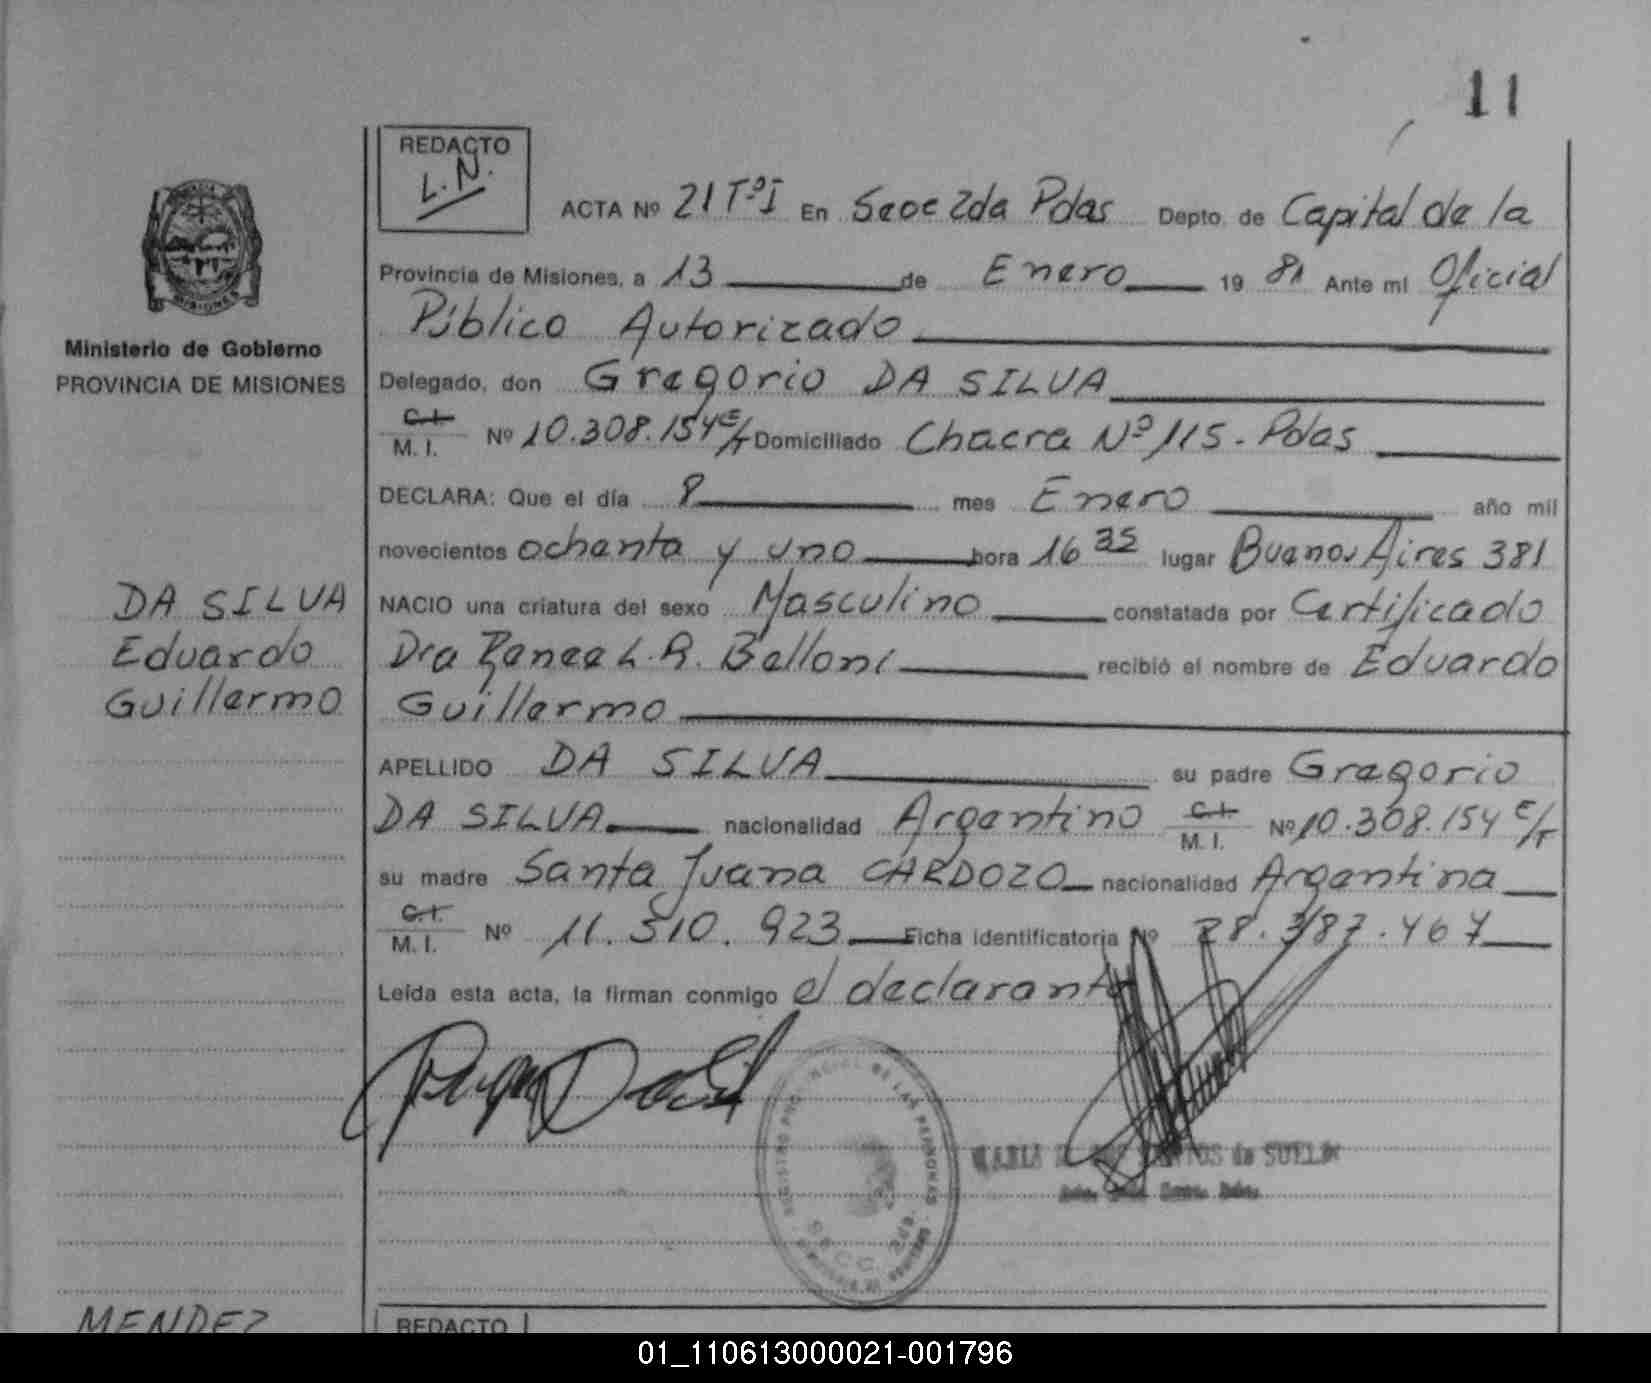 11
REDACTO
L.N.
ACTA Nº 21 Tº I En Secc 2da Pdas Depto. de Capital de la
Provincia de Misiones, a 13 de Enero 19 81 Ante mi Oficial
Público Autorizado
Ministerio de Gobierno
PROVINCIA DE MISIONES
Delegado, don Gregorio DA SILVA
C.I.
M. I. Nº 10.308.154 E/T Domiciliado Chacra Nº 115 - Pdas
DECLARA: Que el día 8 mes Enero año mil
novecientos ochenta y uno hora 16 35 lugar Buenos Aires 381
DA SILVA
Eduardo
Guillermo
NACIO una criatura del sexo Masculino constatada por Certificado
Dra Renee L. R. Belloni recibió el nombre de Eduardo
Guillermo
APELLIDO DA SILVA su padre Gregorio
DA SILVA nacionalidad Argentino C.I. M. I. Nº 10.308.154 E/T
su madre Santa Juana CARDOZO nacionalidad Argentina
C.I.
M. I. Nº 11.310.923 Ficha identificatoria Nº 28.387.467
Leída esta acta, la firman conmigo el declarante
REGISTRO PROVINCIAL DE LAS PERSONAS
SECC. 2da.
de SUELDO
MENDEZ
REDACTO
01_110613000021-001796